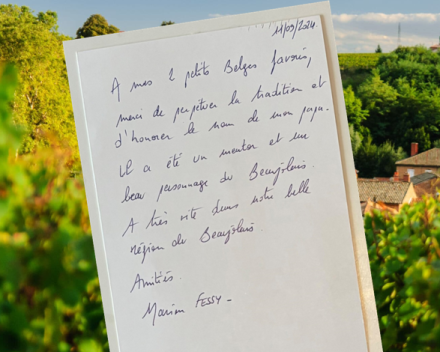 11/09/2024
A mes 2 petits Belges favoris,
merci de perpétuer la tradition et
d'honorer le nom de mon papa.
Il a été un mentor et un
beau personnage du Beaujolais.
A très vite dans notre belle
région du Beaujolais.
Amitiés.
Marion FESSY -